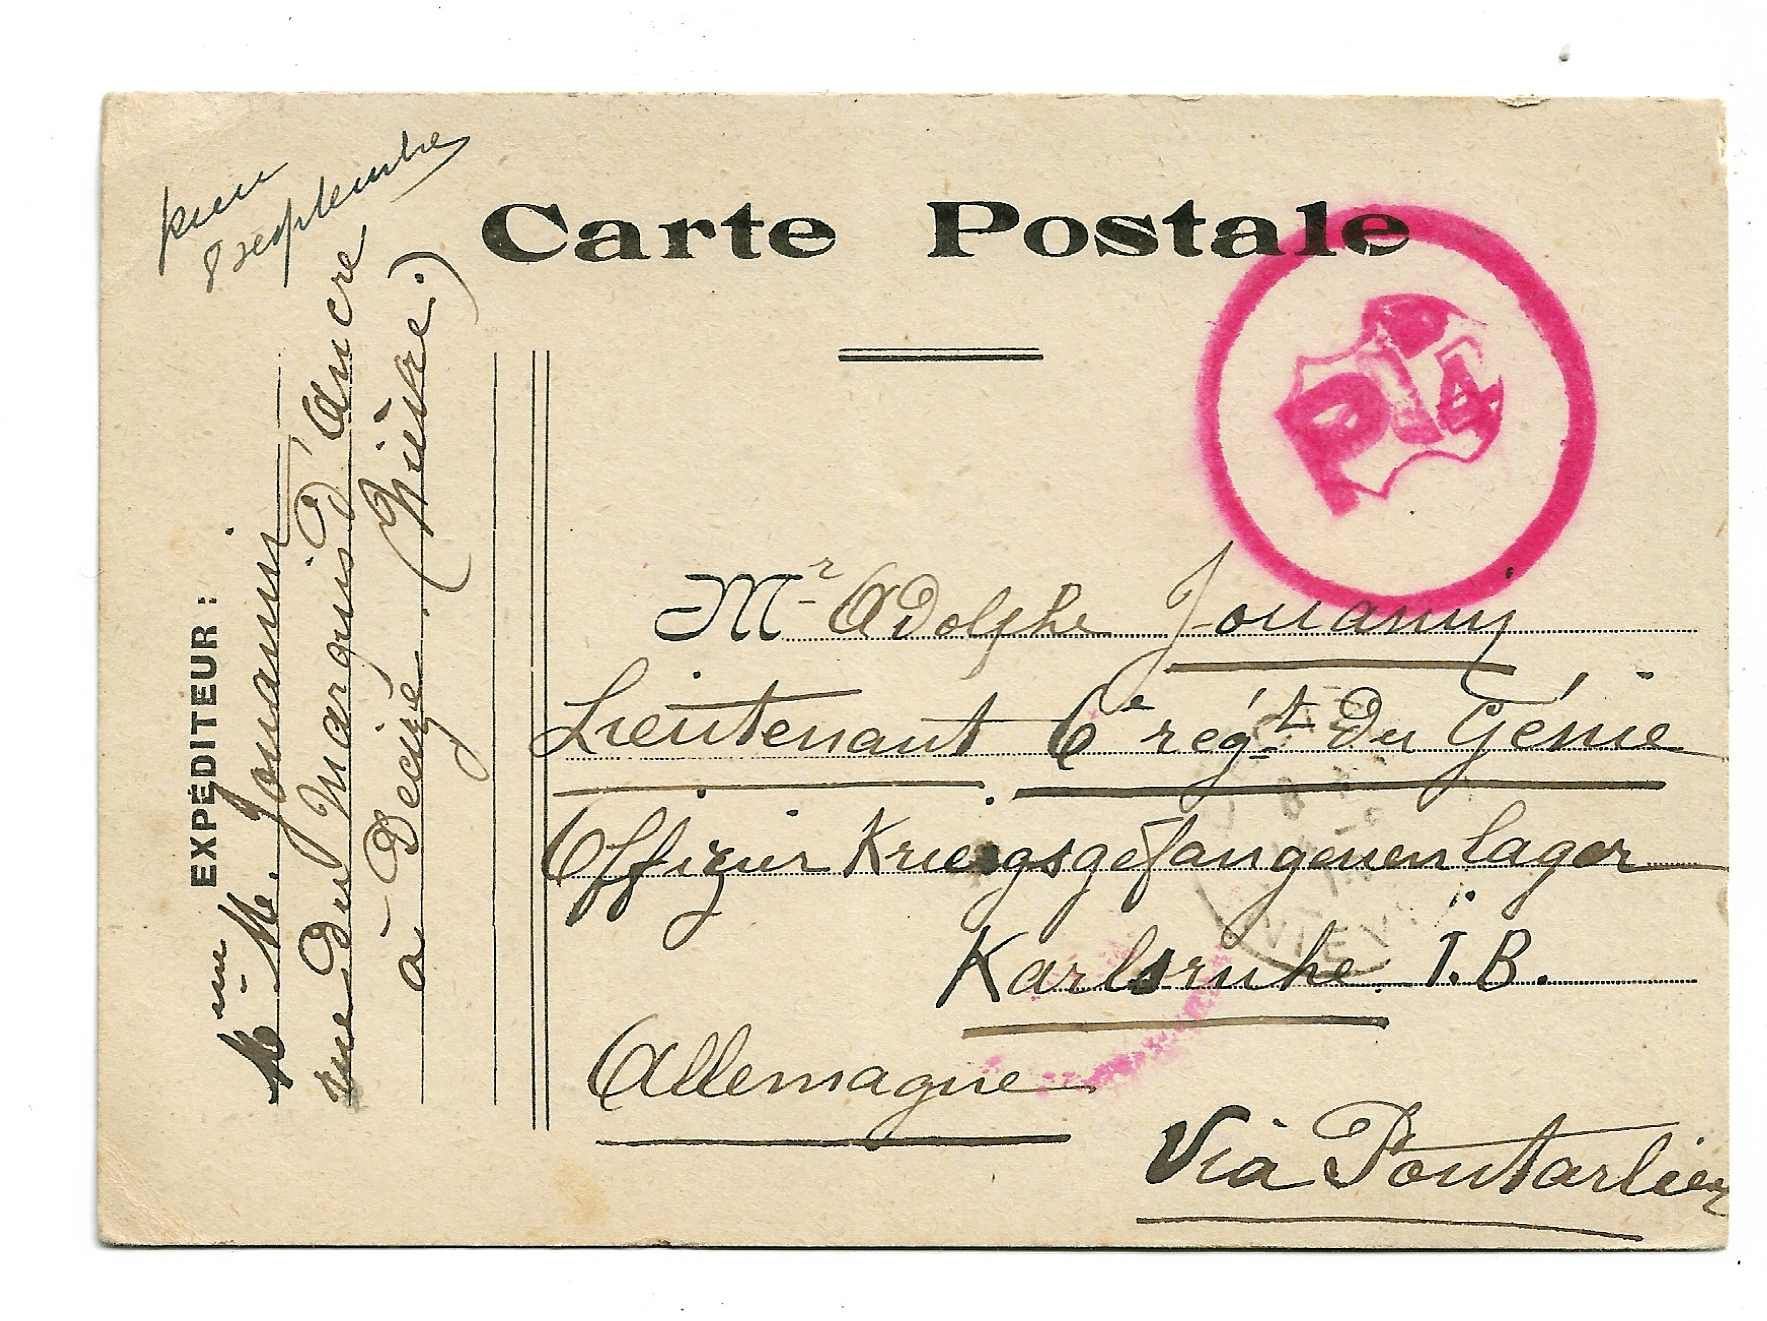 Carte Postale
8 septembre
EXPÉDITEUR :
Mme M. Jouannin
rue du Marquis d'Ancre
à Decize (Nièvre.)
P
P
4
Mr Adolphe Jouannin
Lieutenant 6e régt du Génie
Offizier Kriegsgefangenenlager
Karlsruhe I. B.
Allemagne
Via Pontarlier